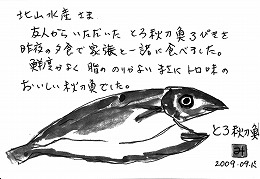 北山水産さま
友人からいただいたとろ秋刀魚3びきを
昨夜の夕食で家族と一緒に食べました。
鮮度がよく 脂ののりがよい まさにトロ味の
おいしい秋刀魚でした。
とろ秋刀魚
2009.09.15